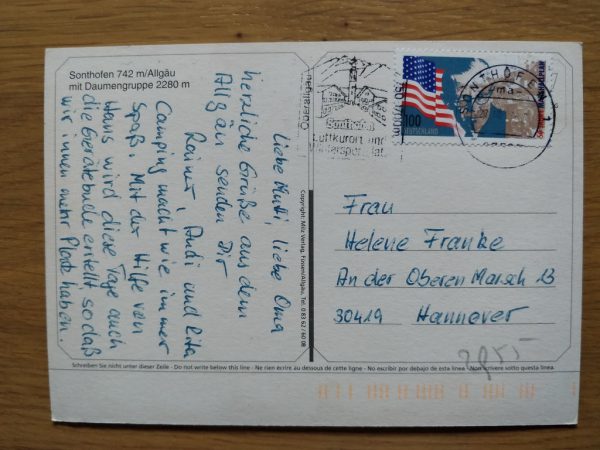 Sonthofen 742 m/Allgäu
mit Daumengruppe 2280 m
Liebe Mutti, liebe Oma
herzliche Grüße aus dem
Allgäu senden Dir
Rainer, Rudi und Rita
Camping macht wie immer
Spaß. Mit der Hilfe von
Hans wird diese Tage auch
die Gerätebude erstellt so daß
wir innen mehr Platz haben.
Copyright: Milz Verlag, Füssen/Allgäu, Tel. 0 83 62 / 60 08
Sonthofen
Luftkurort und
Wintersportplatz
SONTHOFEN
100
DEUTSCHLAND
Frau
Helene Franke
An der Oberen Marsch 13
30419 Hannover
Schreiben Sie nicht unter dieser Zeile - Do not write below this line - Ne rien écrire au dessous de cette ligne - No escribir por debajo de esta linea - Non scrivere sotto questa linea